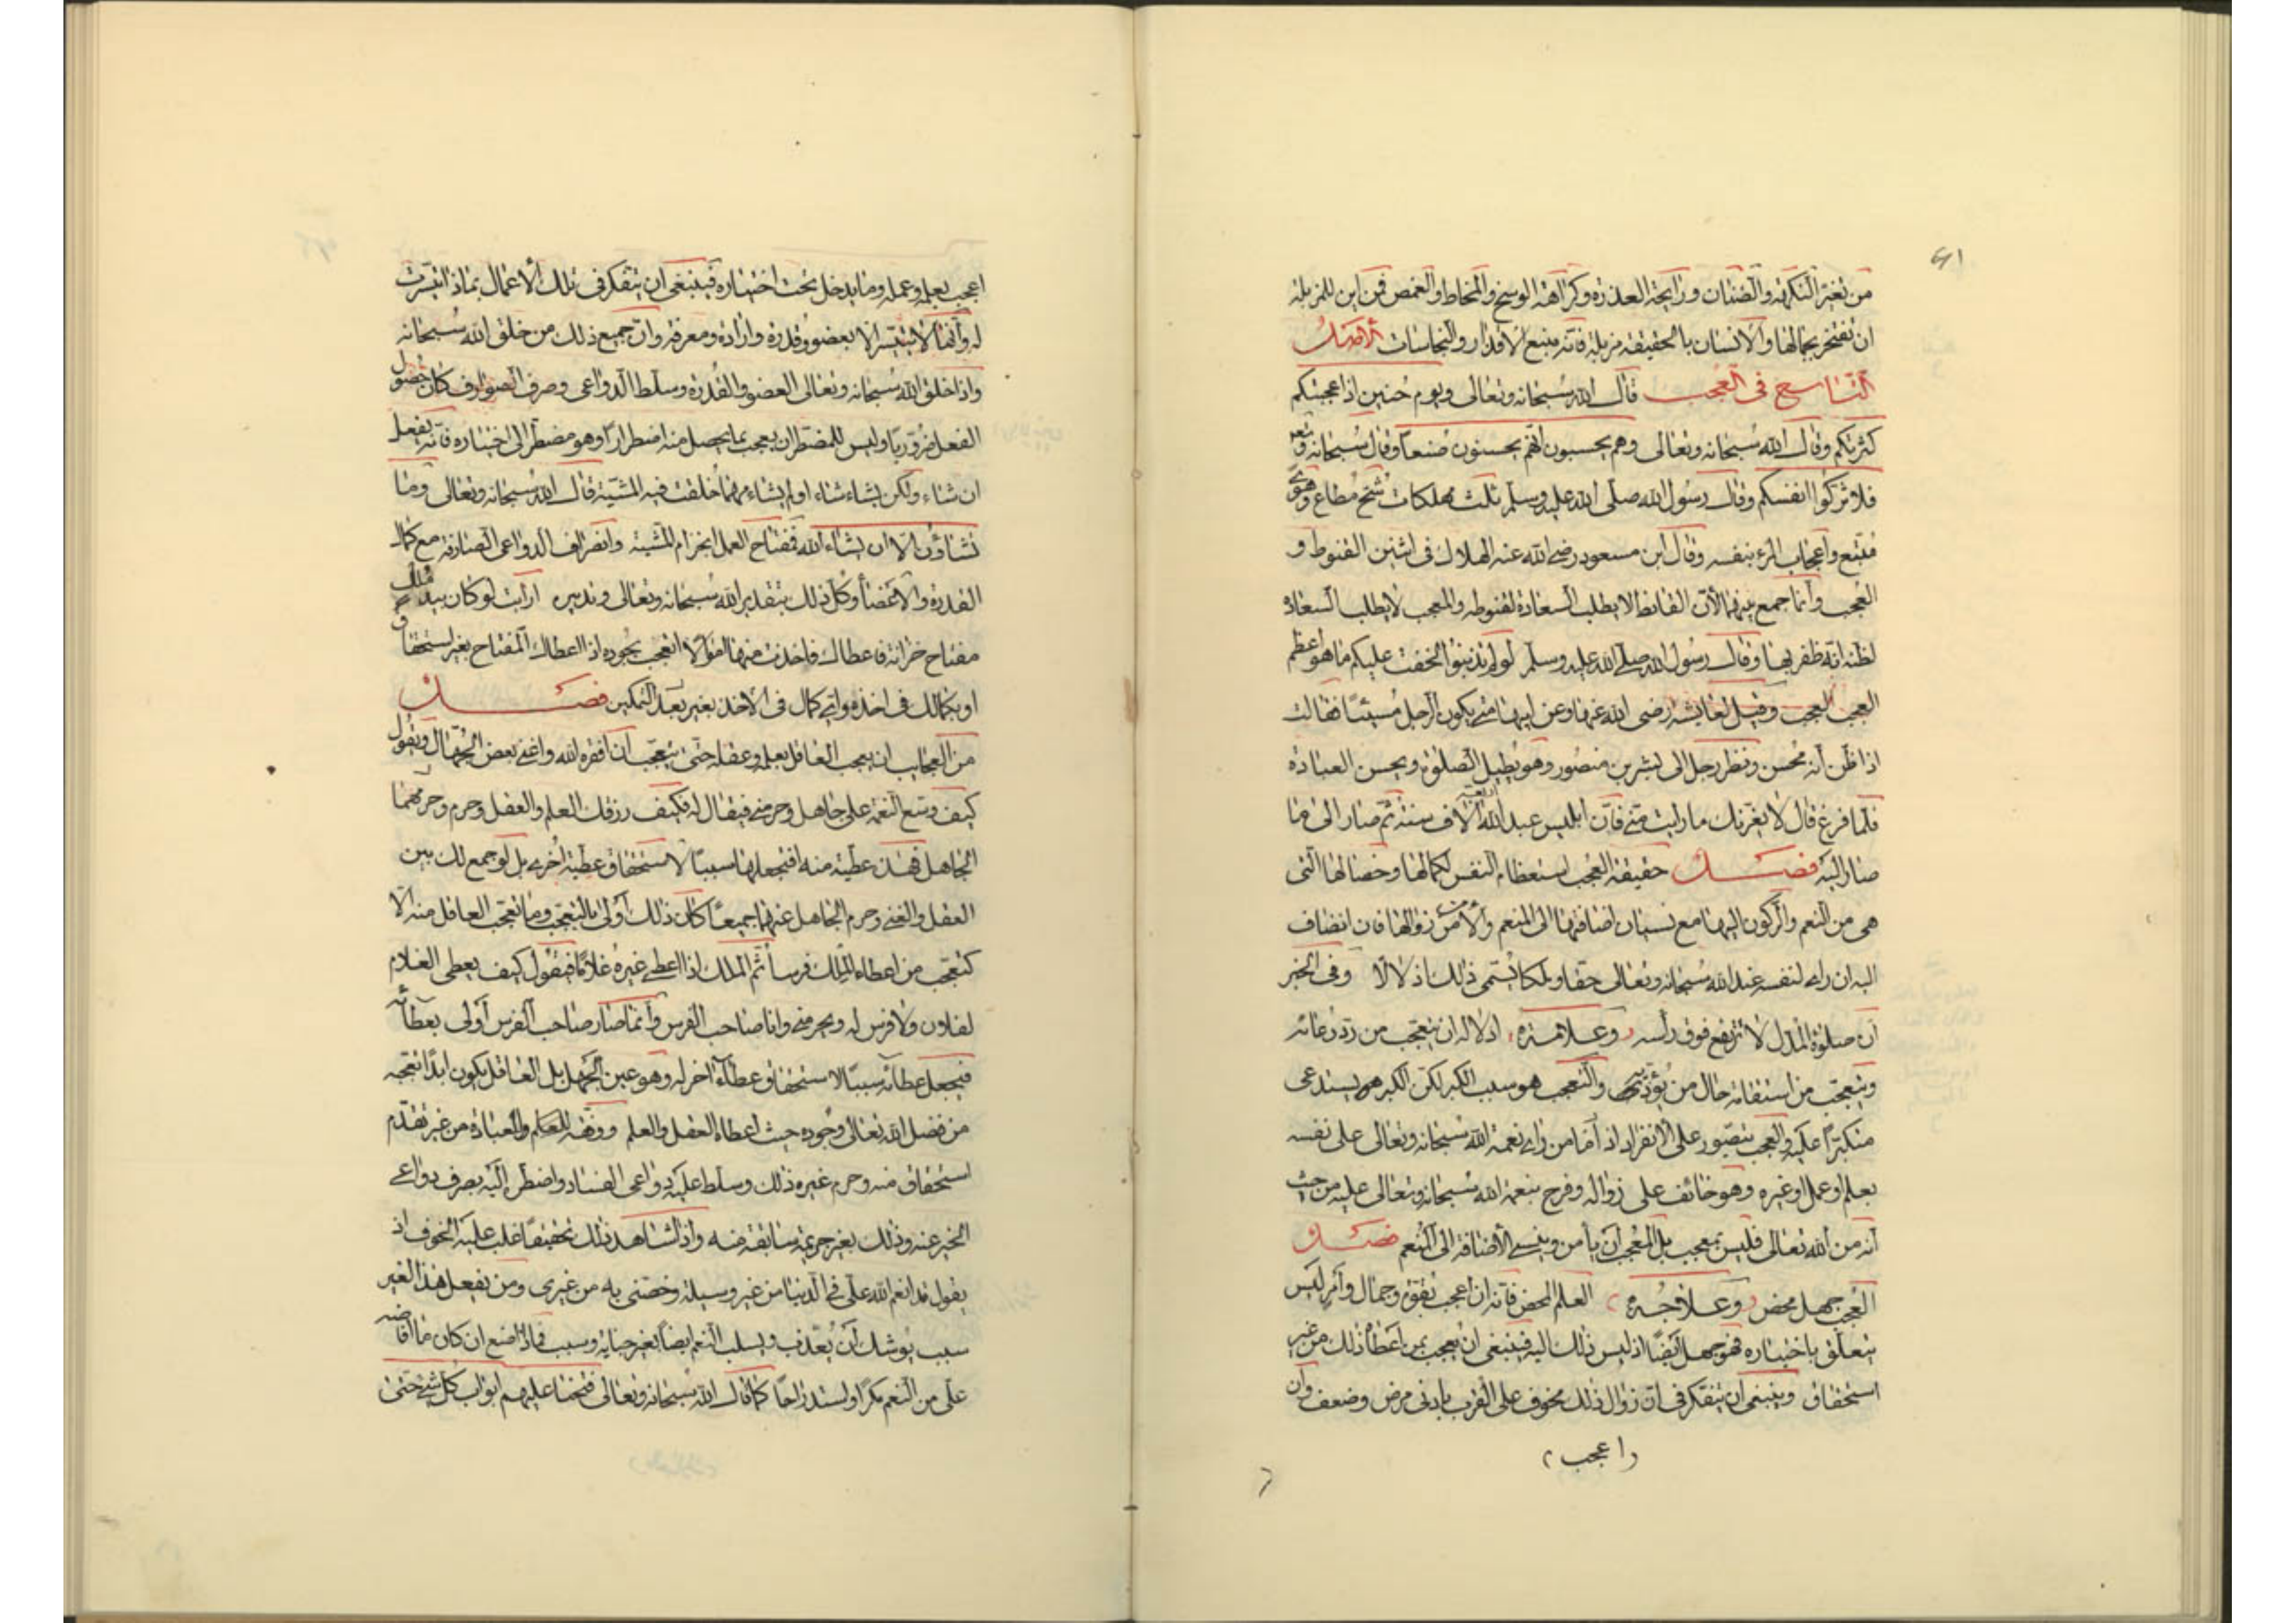 ٤١
من تغير النكهة والصنان ورايحة العذرة وكراهة الوسخ والمخاط والغمص فمن اين للمزبلة
ان تفتخر بجمالها والانسان بالحقيقة مزبلة فانه منبع الاقذار والنجاسات الاصل
التاسع فى العجب قال الله سبحانه وتعالى ويوم حنين اذ اعجبتكم
كثرتكم وقال الله سبحانه وتعالى وهم يحسبون انهم يحسنون صنعا وقال سبحانه وتع
فلا تزكوا انفسكم وقال رسول الله صلى الله عليه وسلم ثلث مهلكات شح مطاع وهوى
متبع واعجاب المرء بنفسه وقال ابن مسعود رضى الله عنه الهلاك فى اثنين القنوط و
العجب وانما جمع بينهما لان القانط لا يطلب السعادة لقنوطه والمعجب لا يطلب السعادة
لظنه انه ظفر بها وقال رسول الله صلى الله عليه وسلم لو لم تذنبوا لخفت عليكم ما هو اعظم
العجب العجب وقيل لعايشة رضى الله عنها وعن ابيها متى يكون الرجل مسيئا فقالت
اذا ظن انه محسن ونظر رجل الى بشر بن منصور وهو يطيل الصلوة ويحسن العبادة
فلما فرغ قال لا يغرنك ما رايت منى فان ابليس عبد الله الاف سنة ثم صار الى ما
صار اليه فصل حقيقة العجب استعظام النفس لكمالها وخصالها التى
هى من النعم والركون اليها مع نسيان اضافتها الى المنعم والامن من زوالها فان انضاف
اليه ان راى لنفسه عند الله سبحانه وتعالى حقا ومكانا يسمى ذلك اذلالا وفى الخبر
ان صلوة المدل لا ترتفع فوق رأسه وعلامة ادلاله ان يتعجب من رد دعائه
ويتعجب من استقامة حال من يؤذيه والتعجب هو سبب الكبر لكن الكبر هو يستدعى
متكبرا عليه والعجب يتصور على الانفراد اذ اما من راى نعمة الله سبحانه وتعالى على نفسه
بعلم او عمل او غيره وهو خائف على زواله وفرح بنعمة الله سبحانه وتعالى عليه من حيث
انه من الله تعالى فليس بمعجب بل المعجب ان يأمن وينسى الاضافة الى المنعم فصل
العجب جهل محض وعلاجه العلم المحض فانه ان اعجب بقوة وجمال وامر ليس
يتعلق باختياره فهو جهل ايضا اذ ليس ذلك اليه فينبغى ان يعجب بمن اعطاه ذلك من غير
استحقاق وينبغى ان يتفكر فى ان زوال ذلك مخوف على القرب بادنى مرض وضعف وان
اعجب
اعجب بعلمه وعمله وما يدخل تحت اختياره فينبغى ان يتفكر فى تلك الاعمال بماذا تيسرت
له وانها لا تتيسر الا بعضو وقدرة وارادة ومعرفة وان جميع ذلك من خلق الله سبحانه
واذا خلق الله سبحانه وتعالى العضو والقدرة وسلط الدواعى وصرف الصوارف كان حصول
الفعل ضروريا وليس للمضطر ان يعجب بما يحصل منه اضطرارا وهو مضطر الى اختياره فانه يفعل
ان شاء ولكن يشاء شاء او لم يشاء مهما خلقت فيه المشية قال الله سبحانه وتعالى وما
تشاؤن الا ان يشاء الله فمفتاح العمل انجزام المشية وانصراف الدواعى الصارفة مع كمال
القدرة والاعضاء وكل ذلك بتقدير الله سبحانه وتعالى وتدبيره ارأيت لو كان بيد ملك
مفتاح خزانة فاعطاك فاخذت منها اموالا اتعجب بجوده اذ اعطاك المفتاح بغير استحقاق
او بكمالك فى اخذه واى كمال فى الاخذ بغير بعد التمكين فصل
من العجايب ان يعجب العاقل بعلمه وعقله حتى يتعجب ان افقره الله واغنى بعض الجهال ويقول
كيف وسع النعمة على جاهل وحرمنى فيقال له فكيف رزقك العلم والعقل وحرم وحرمهما
الجاهل فهذه عطية منه افتجعلها سببا لاستحقاق عطية اخرى بل لو جمع لك بين
العقل والغنى وحرم الجاهل عنهما جميعا كان ذلك اولى بالتعجب وما تعجب العاقل منه الا
كتعجب من اعطاه الملك فرسا ثم الملك اذا اعطى غيره غلاما فيقول كيف يعطى الغلام
لفلان ولا فرس له ويحرمنى وانا صاحب الفرس وانما صار صاحب الفرس اولى بعطائه
فيجعل عطائه سببا لاستحقاق عطاء اخر له وهو عين الجهل بل العاقل يكون ابدا تعجبه
من فضل الله تعالى وجوده حيث اعطاه العقل والعلم ووفقه للعلم والعبادة من غير تقدم
استحقاق منه وحرم غيره ذلك وسلط عليه دواعى الفساد واضطر اليه بصرف دواعى
الخير عنه وذلك بغير جريمة سابقة منه واذا شاهد ذلك تحقيقا غلب عليه الخوف اذ
يقول قد انعم الله على فى الدنيا من غير وسيلة وخصنى به من غيرى ومن يفعل هذا الغير
سبب يوشك ان يعذب ويسلب النعم ايضا بغير جناية وسبب فماذا اصنع ان كان ما افاضه
على من النعم مكرا واستدراجا كما قال الله سبحانه وتعالى فتحنا عليهم ابواب كل شئ حتى